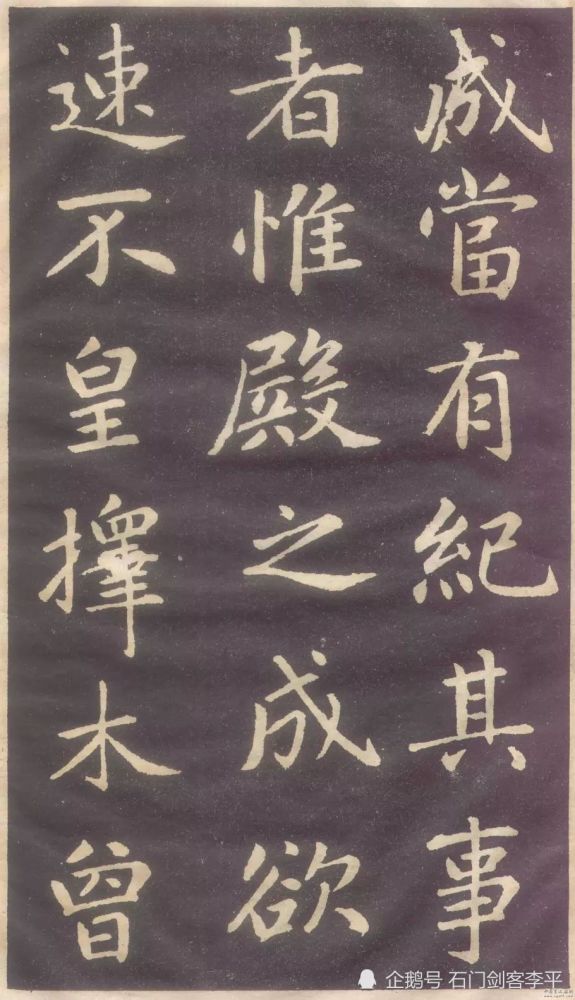 成當有紀其事
者惟殿之成欲
速不皇擇木曾
企鹅号 石门剑客李平